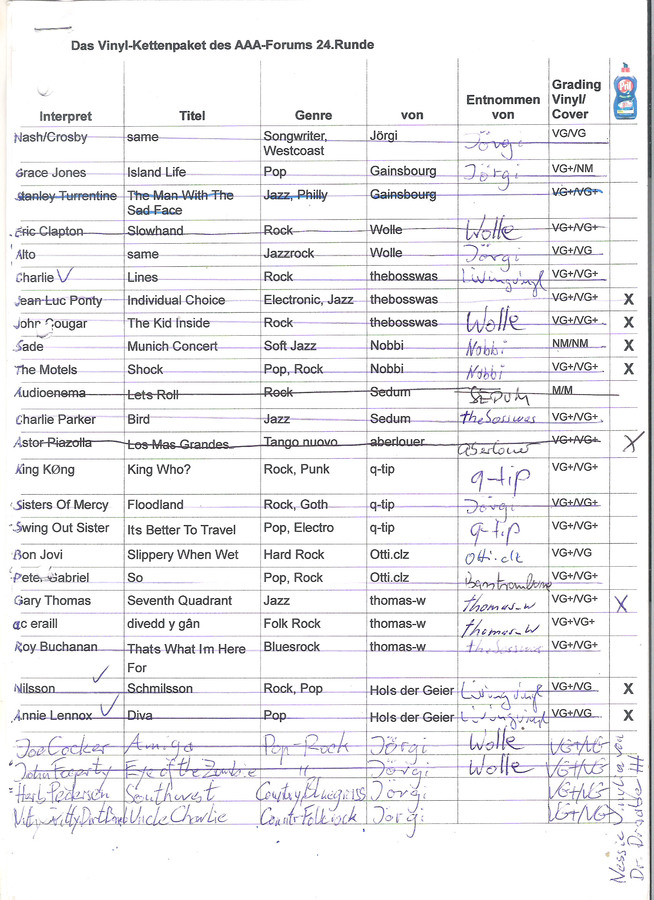 Das Vinyl-Kettenpaket des AAA-Forums 24.Runde
Interpret Titel Genre von Entnommen von Grading Vinyl/ Cover
Nash/Crosby same Songwriter, Westcoast Jörgi Jörgi VG/VG
Grace Jones Island Life Pop Gainsbourg Jörgi VG+/NM
Stanley Turrentine The Man With The Sad Face Jazz, Philly Gainsbourg VG+/VG+
Eric Clapton Slowhand Rock Wolle Wolle VG+/VG+
Alto same Jazzrock Wolle Jörgi VG+/VG
Charlie Lines Rock thebosswas Livingvinyl VG+/VG+
Jean Luc Ponty Individual Choice Electronic, Jazz thebosswas VG+/VG+ X
John Cougar The Kid Inside Rock thebosswas Wolle VG+/VG+ X
Sade Munich Concert Soft Jazz Nobbi Nobbi NM/NM X
The Motels Shock Pop, Rock Nobbi Nobbi VG+/VG+ X
Audioenema Lets Roll Rock Sedum SEDUM M/M
Charlie Parker Bird Jazz Sedum VG+/VG+
Astor Piazolla Los Mas Grandes Tango nuovo aberlouer aberlouer VG+/VG+ X
King KØng King Who? Rock, Punk q-tip q-tip VG+/VG+
Sisters Of Mercy Floodland Rock, Goth q-tip Jörgi VG+/VG+
Swing Out Sister Its Better To Travel Pop, Electro q-tip q-tip VG+/VG+
Bon Jovi Slippery When Wet Hard Rock Otti.clz Otti.clz VG+/VG
Peter Gabriel So Pop, Rock Otti.clz VG+/VG+
Gary Thomas Seventh Quadrant Jazz thomas-w thomas-w VG+/VG+ X
ac eraill divedd y gân Folk Rock thomas-w thomas-w VG+VG+
Roy Buchanan Thats What Im Here For Bluesrock thomas-w VG+/VG+
Nilsson Schmilsson Rock, Pop Hols der Geier Livingvinyl VG+/VG X
Annie Lennox Diva Pop Hols der Geier Livingvinyl VG+/VG X
Joe Cocker Amiga Pop-Rock Jörgi Wolle VG+/VG
John Fogerty Eye of the Zombie " Jörgi Wolle VG+/VG
Herb Pedersen Southwest Country, Bluegrass Jörgi VG+/VG
Nitty Gritty Dirt Band Uncle Charlie Jörgi VG+/VG